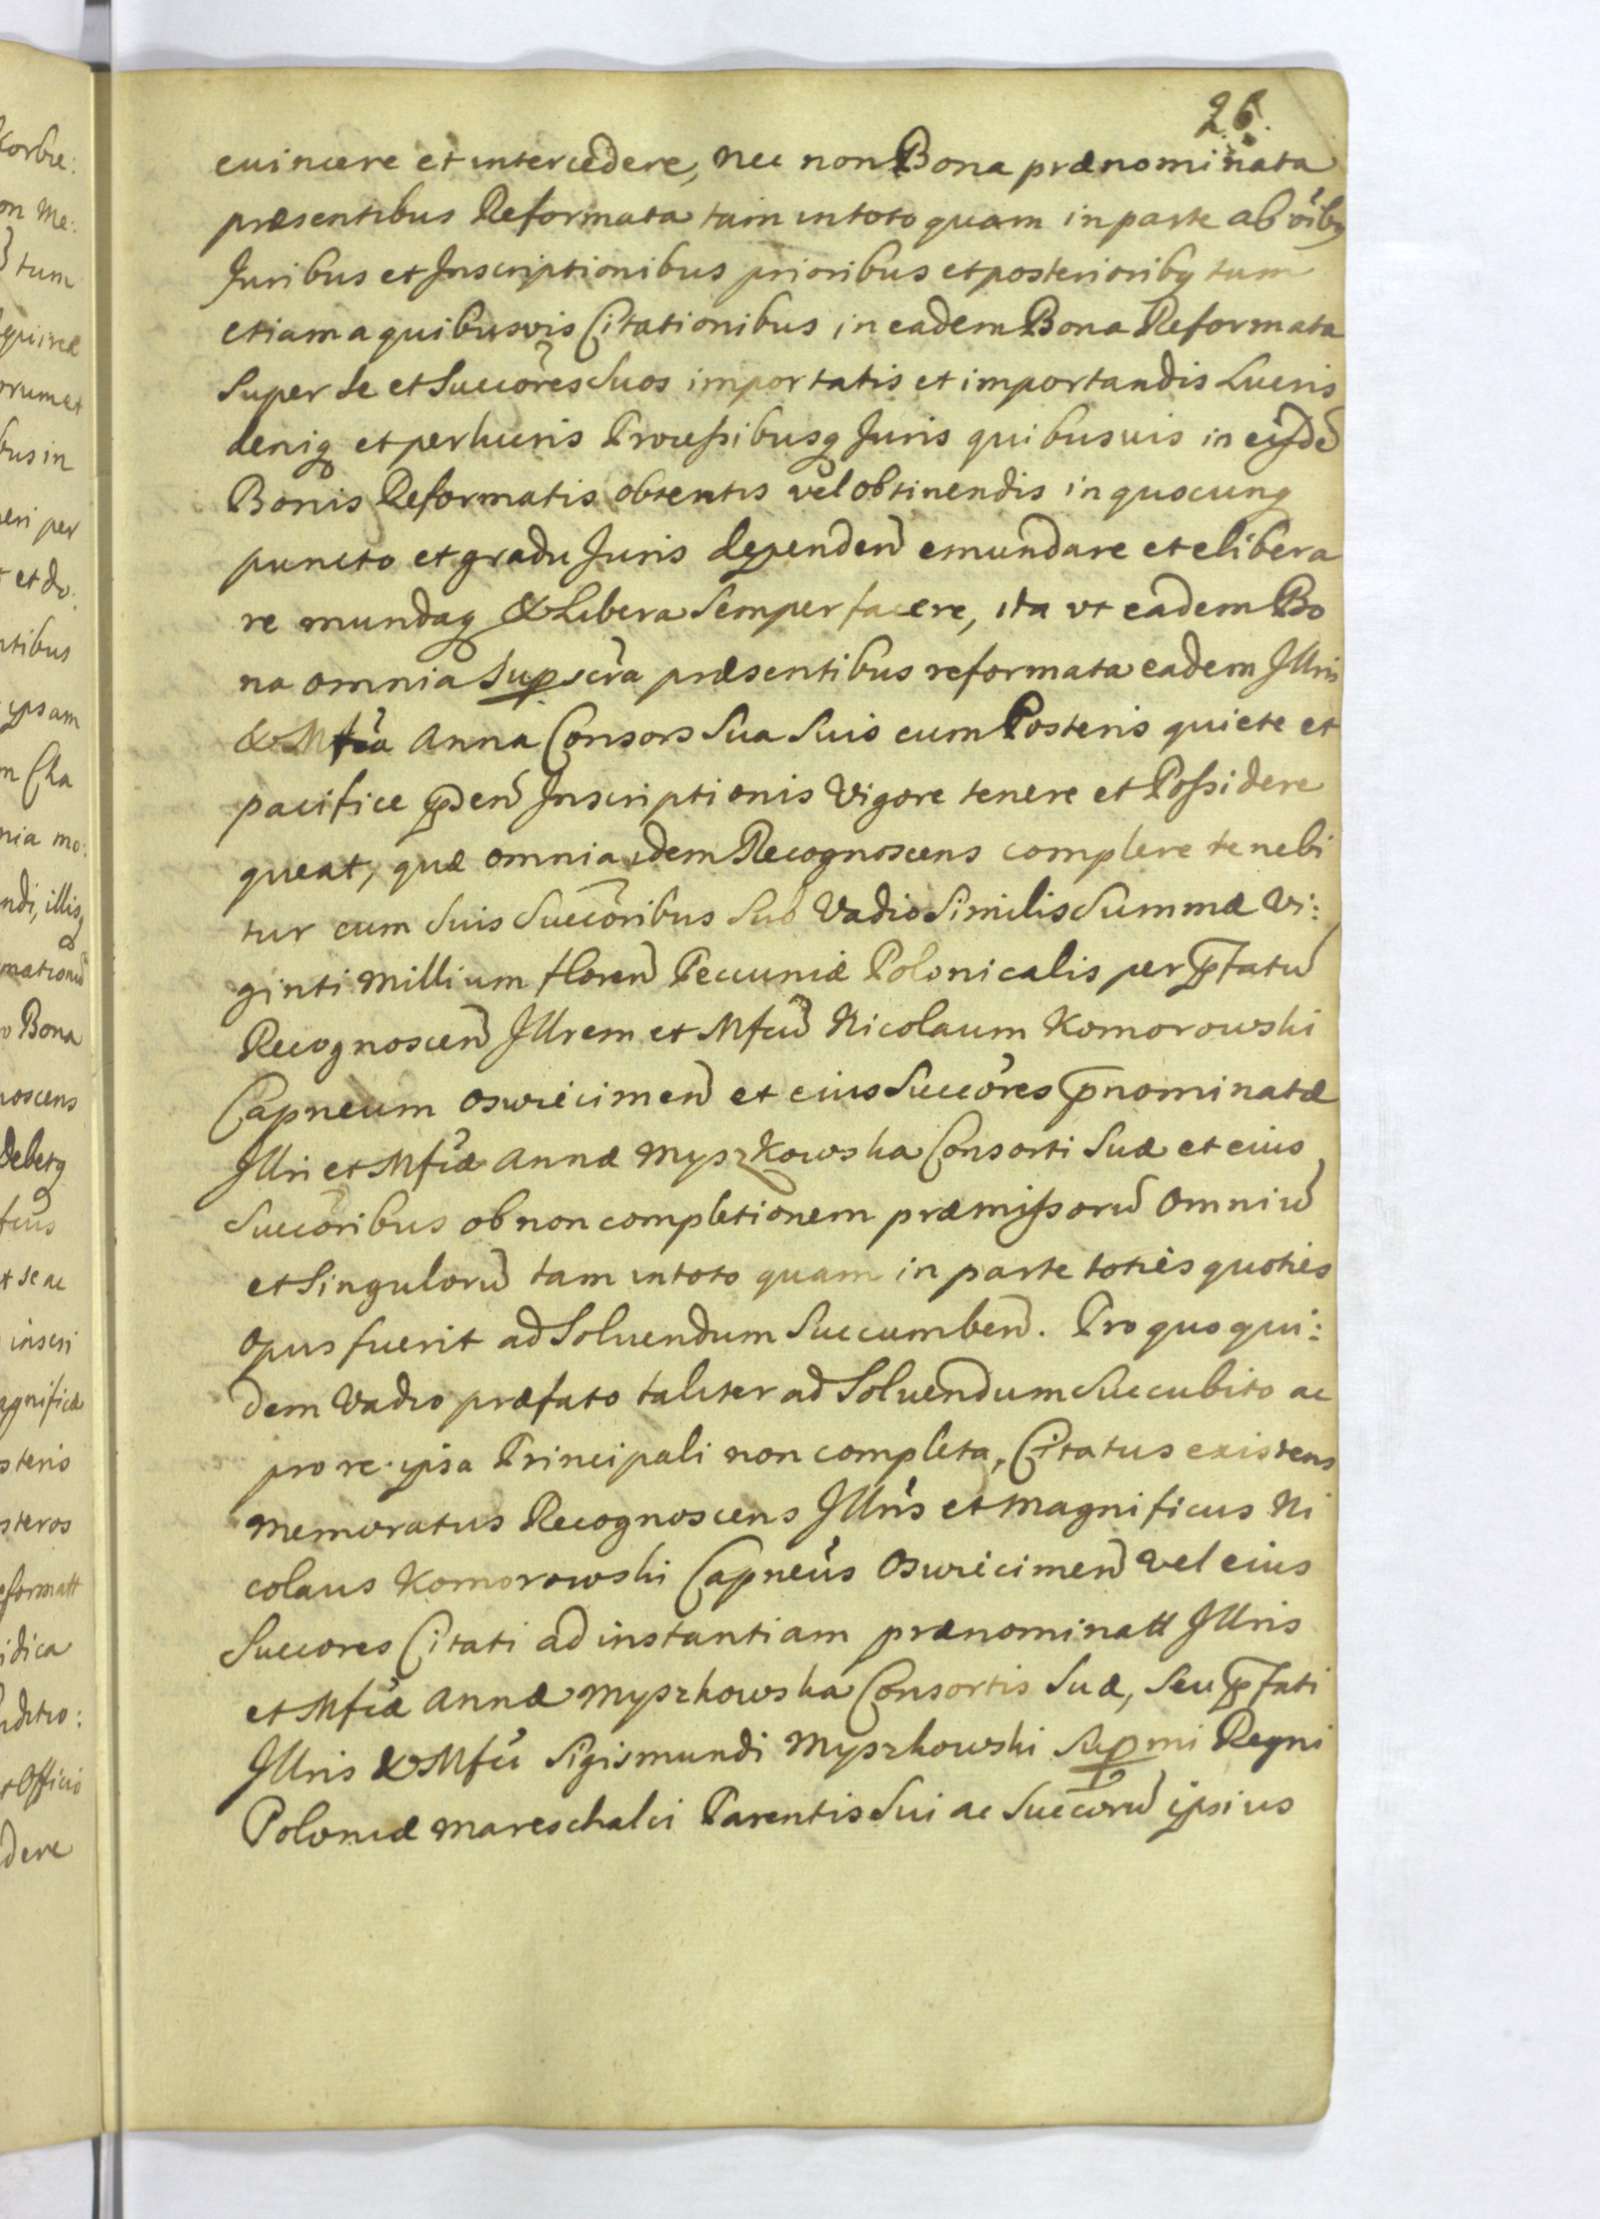 26.
euincere et intercedere, nec non Bona prænominata
præsentibus Reformata tam in toto quam in parte ab oîbq
Juribus et Inscriptionibus prioribus et posterioribq tum
etiam a quibusvis Citationibus in eadem Bona Reformata
Super Se et Succores Suos importatis et importandis Lucris
deniq et perlucris Processibusq Juris quibusuis in eisde
Bonis Reformatis obtentis vel obtinendis in quocunq
puncto et gradu Juris dependen emundare et elibera
re mundaq & Libera Semper facere, ita vt eadem Bo
na omnia Supscra præsentibus reformata eadem Illris
& Mfca Anna Consors Sua Suis cum Posteris quiete et
pacifice pñden Inscriptionis Vigore tenere et Possidere
queat, quæ omnia idem Recognoscens complere tenebi
tur cum Suis Succoribus Sub Vadio Similis Summæ Vi:
ginti Millium floren Pecuniæ Polonicalis per pfatu
Recognoscen Illrem et Mfcu Nicolaum Komorowski
Capneum Oswiecimen et eius Succores pnominatæ
Illri et Mfcæ Annæ Myszkowska Consorti Suæ et eius
Succoribus ob non completionem præmissoru Omniu
et Singuloru tam in toto quam in parte toties quoties
Opus fuerit ad Soluendum Succumben. Pro quo qui:
dem Vadio præfato taliter ad Soluendum Succubito ac
pro re ipsa Principali non completa, Citatus existens
Memoratus Recognoscens Illris et Magnificus Ni
colaus Komorowski Capneus Oswiecimen vel eius
Succores Citati ad instantiam prænominatt Illris
et Mfcæ Annæ Myszkowska Consortis Suæ, Seu pfati
Illris & Mfci Sigismundi Myszkowski Supmi Regni
Poloniæ Mareschalci Parentis Sui ac Succoru ipsius